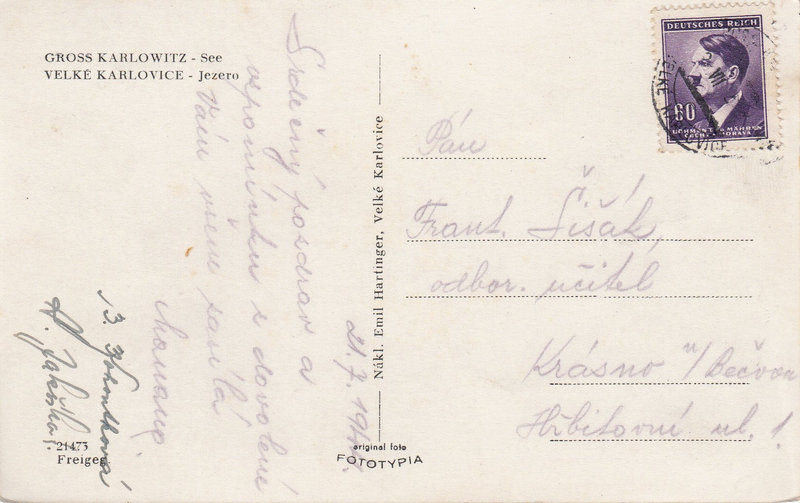 GROSS KARLOWITZ - See
VELKÉ KARLOVICE - Jezero
Srdečný pozdrav a
vzpomínku z dovolené
Vám všem zasílá
21.7.194
B.
21473
Freigeg.
Nákl. Emil Hartinger, Velké Karlovice
original foto
FOTOTYPIA
DEUTSCHES REICH
60
BÖHMEN u. MÄHREN
ČECHY a MORAVA
Pán
Frant. Šišák,
odbor. učitel
Krásno n/Bečvou
Hřbitovní ul. 1.